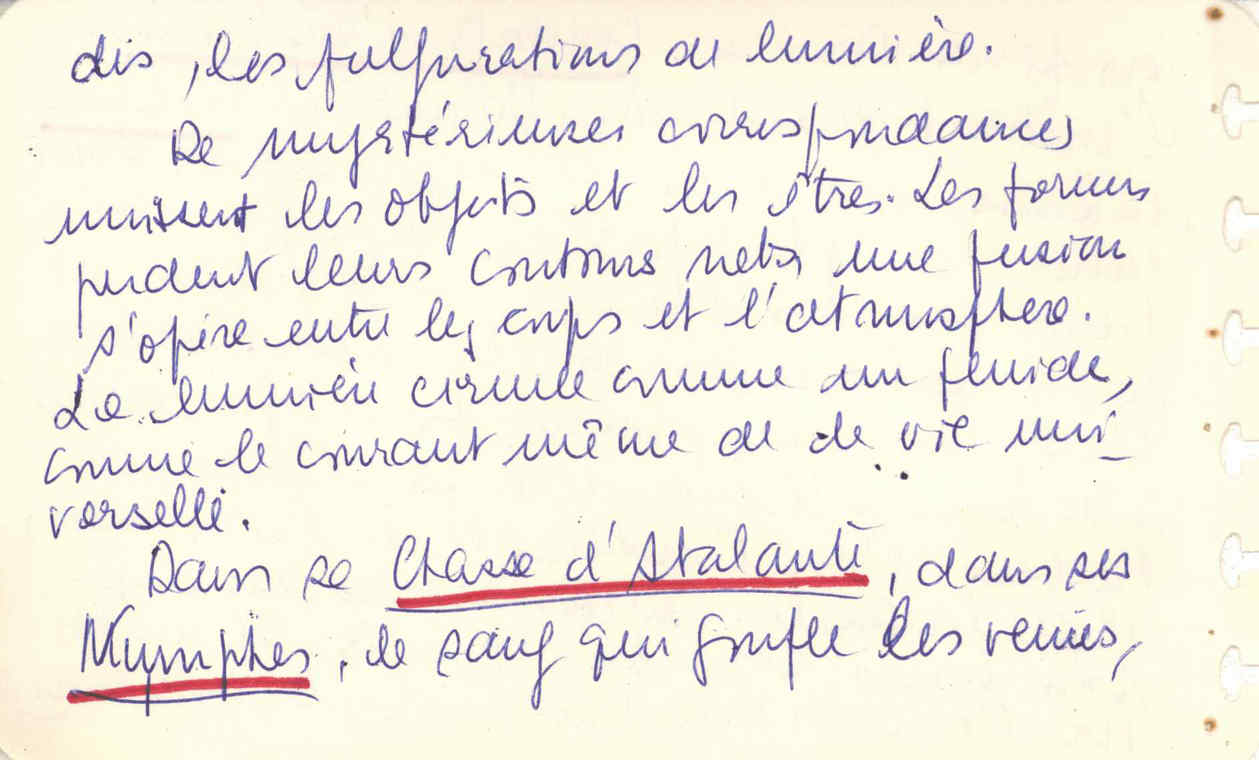 dis, les fulgurations de lumière.
De mystérieuses correspondances
unissent les objets et les êtres. Les formes
perdent leurs contours nets, une fusion
s'opère entre les corps et l'atmosphère.
La lumière circule comme un fluide,
comme le courant même de la vie uni-
verselle.
Dans sa Chasse d'Atalante, dans ses
Nymphes, le sang qui gonfle les veines,